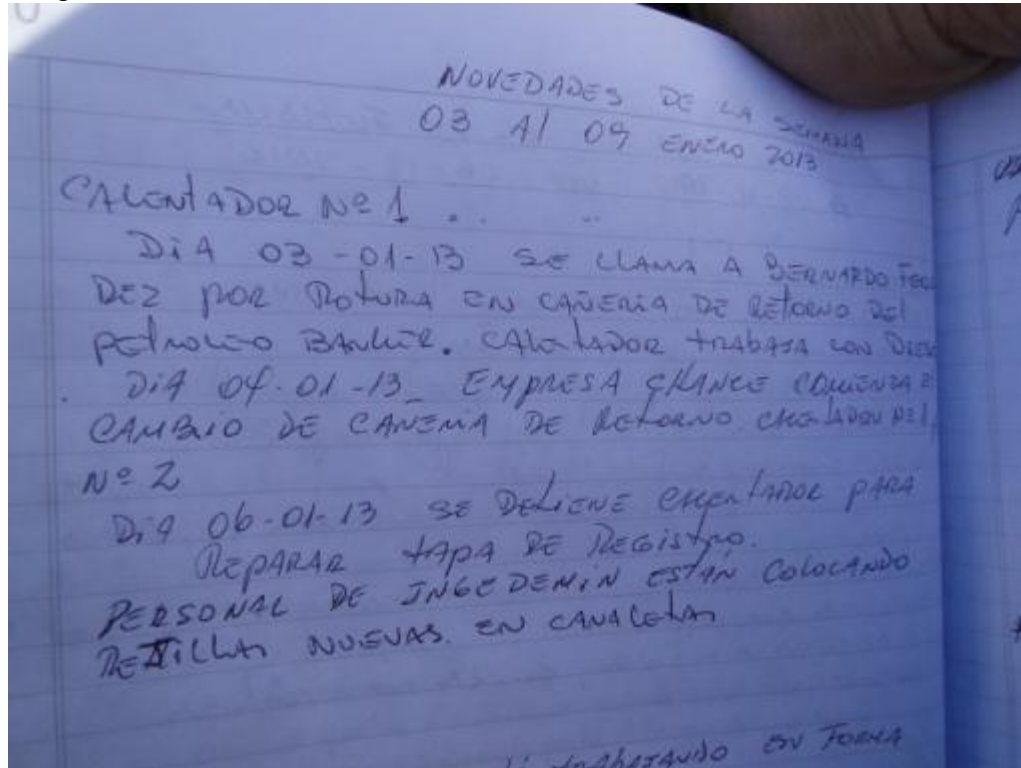 NOVEDADES DE LA SEMANA
03 Al 09 ENERO 2013
CALENTADOR Nº 1 .. ..
DiA 03-01-13 SE LLAMA A BERNARDO
DEZ POR ROTURA EN CAÑERIA DE RETORNO DEL
PETROLEO BUNKER. CALENTADOR TRABAJA CON
. DiA 04-01-13_ EMPRESA COMIENZA
CAMBIO DE CAÑERIA DE RETORNO CALENTADOR Nº1,
Nº 2
DiA 06-01-13 SE DETIENE CALENTADOR PARA
REPARAR TAPA DE REGISTRO.
PERSONAL DE INGEDEMIN ESTAN COLOCANDO
REJILLAS NUEVAS. EN CANALETAS
TRABAJANDO EN FORMA